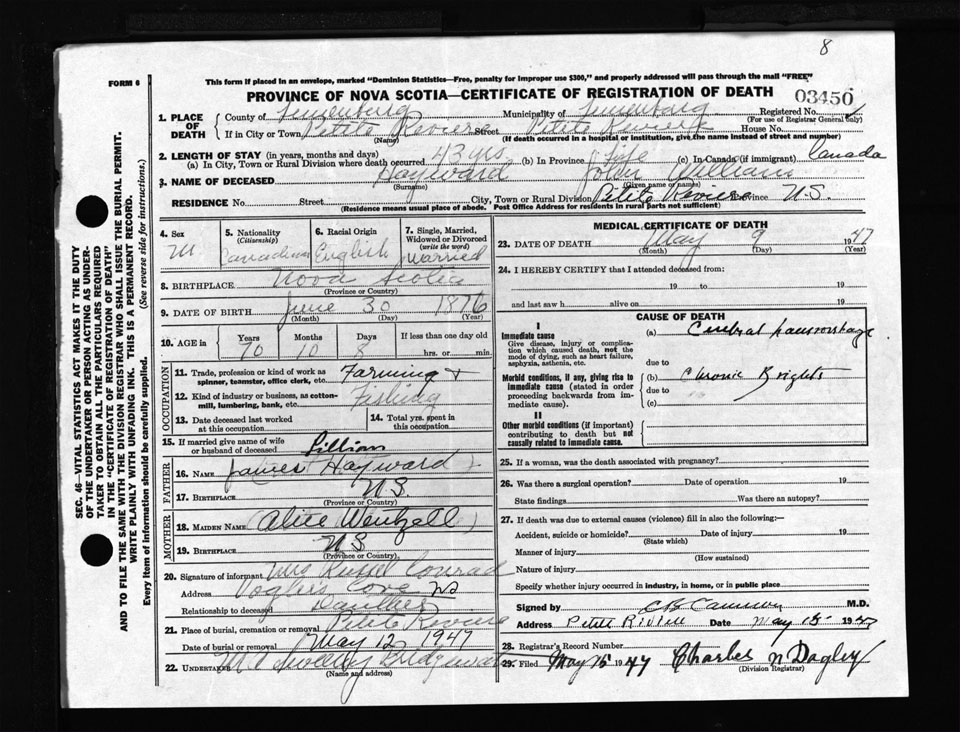 8
FORM 6
This form if placed in an envelope, marked "Dominion Statistics—Free, penalty for improper use $300," and properly addressed will pass through the mail "FREE"
PROVINCE OF NOVA SCOTIA—CERTIFICATE OF REGISTRATION OF DEATH
03450
1. PLACE OF DEATH
County of Lunenburg Municipality of Lunenburg Registered No.
(For use of Registrar General only)
If in City or Town Petite Reviere Street Petite Reviere House No.
(Name) (If death occurred in a hospital or institution, give the name instead of street and number)
2. LENGTH OF STAY (in years, months and days)
(a) In City, Town or Rural Division where death occurred 43 yrs. (b) In Province life (c) In Canada (if immigrant) Canada
3. NAME OF DECEASED Hayward John William
(Surname) (Given name or names)
RESIDENCE No. Street City, Town or Rural Division Petite Reviere Province N.S.
(Residence means usual place of abode. Post Office Address for residents in rural parts not sufficient)
4. Sex M
5. Nationality (Citizenship) Canadian
6. Racial Origin English
7. Single, Married, Widowed or Divorced (write the word) Married
8. BIRTHPLACE Nova Scotia
(Province or Country)
9. DATE OF BIRTH June 30 1876
(Month) (Day) (Year)
10. AGE in Years Months Days If less than one day
70 10 8 hrs. or min.
OCCUPATION
11. Trade, profession or kind of work as spinner, teamster, office clerk, etc. Farming &
12. Kind of industry or business, as cotton-mill, lumbering, bank, etc. Fishing
13. Date deceased last worked at this occupation
14. Total yrs. spent in this occupation
15. If married give name of wife or husband of deceased Lillian
FATHER
16. NAME James Hayward
17. BIRTHPLACE N.S.
(Province or Country)
MOTHER
18. MAIDEN NAME (Alice Wentzell)
19. BIRTHPLACE N S
(Province or Country)
20. Signature of informant Mrs Russel Conrad
Address Voglers Cove NS
Relationship to deceased Daughter
21. Place of burial, cremation or removal Petite Reviere
Date of burial or removal May 12 1947
22. UNDERTAKER
(Name and address)
MEDICAL CERTIFICATE OF DEATH
23. DATE OF DEATH May 9 1947
(Month) (Day) (Year)
24. I HEREBY CERTIFY that I attended deceased from:
19 to 19
and last saw h alive on 19
CAUSE OF DEATH
I
Immediate cause
Give disease, injury or complication which caused death, not the mode of dying, such as heart failure, asphyxia, asthenia, etc.
(a) Cerebral haemorrhage
due to
Morbid conditions, if any, giving rise to immediate cause (stated in order proceeding backwards from immediate cause).
(b) Chronic Brights
due to
(c)
II
Other morbid conditions (if important) contributing to death but not causally related to immediate cause.
25. If a woman, was the death associated with pregnancy?
26. Was there a surgical operation? Date of operation 19
State findings Was there an autopsy?
27. If death was due to external causes (violence) fill in also the following:—
Accident, suicide or homicide? Date of injury 19
(State which)
Manner of injury
(How sustained)
Nature of injury
Specify whether injury occurred in industry, in home, or in public place
Signed by M.D.
Address Petite Riviere Date May 15 1947
28. Registrar's Record Number
29. Filed May 15 1947 Charles N Dagley
(Division Registrar)
SEC. 46—VITAL STATISTICS ACT MAKES IT THE DUTY
OF THE UNDERTAKER OR PERSON ACTING AS UNDER-
TAKER TO OBTAIN ALL THE PARTICULARS REQUIRED
IN THE "CERTIFICATE OF REGISTRATION OF DEATH"
AND TO FILE THE SAME WITH THE DIVISION REGISTRAR WHO SHALL ISSUE THE BURIAL PERMIT.
WRITE PLAINLY WITH UNFADING INK. THIS IS A PERMANENT RECORD.
Every item of information should be carefully supplied. (See reverse side for instructions.)